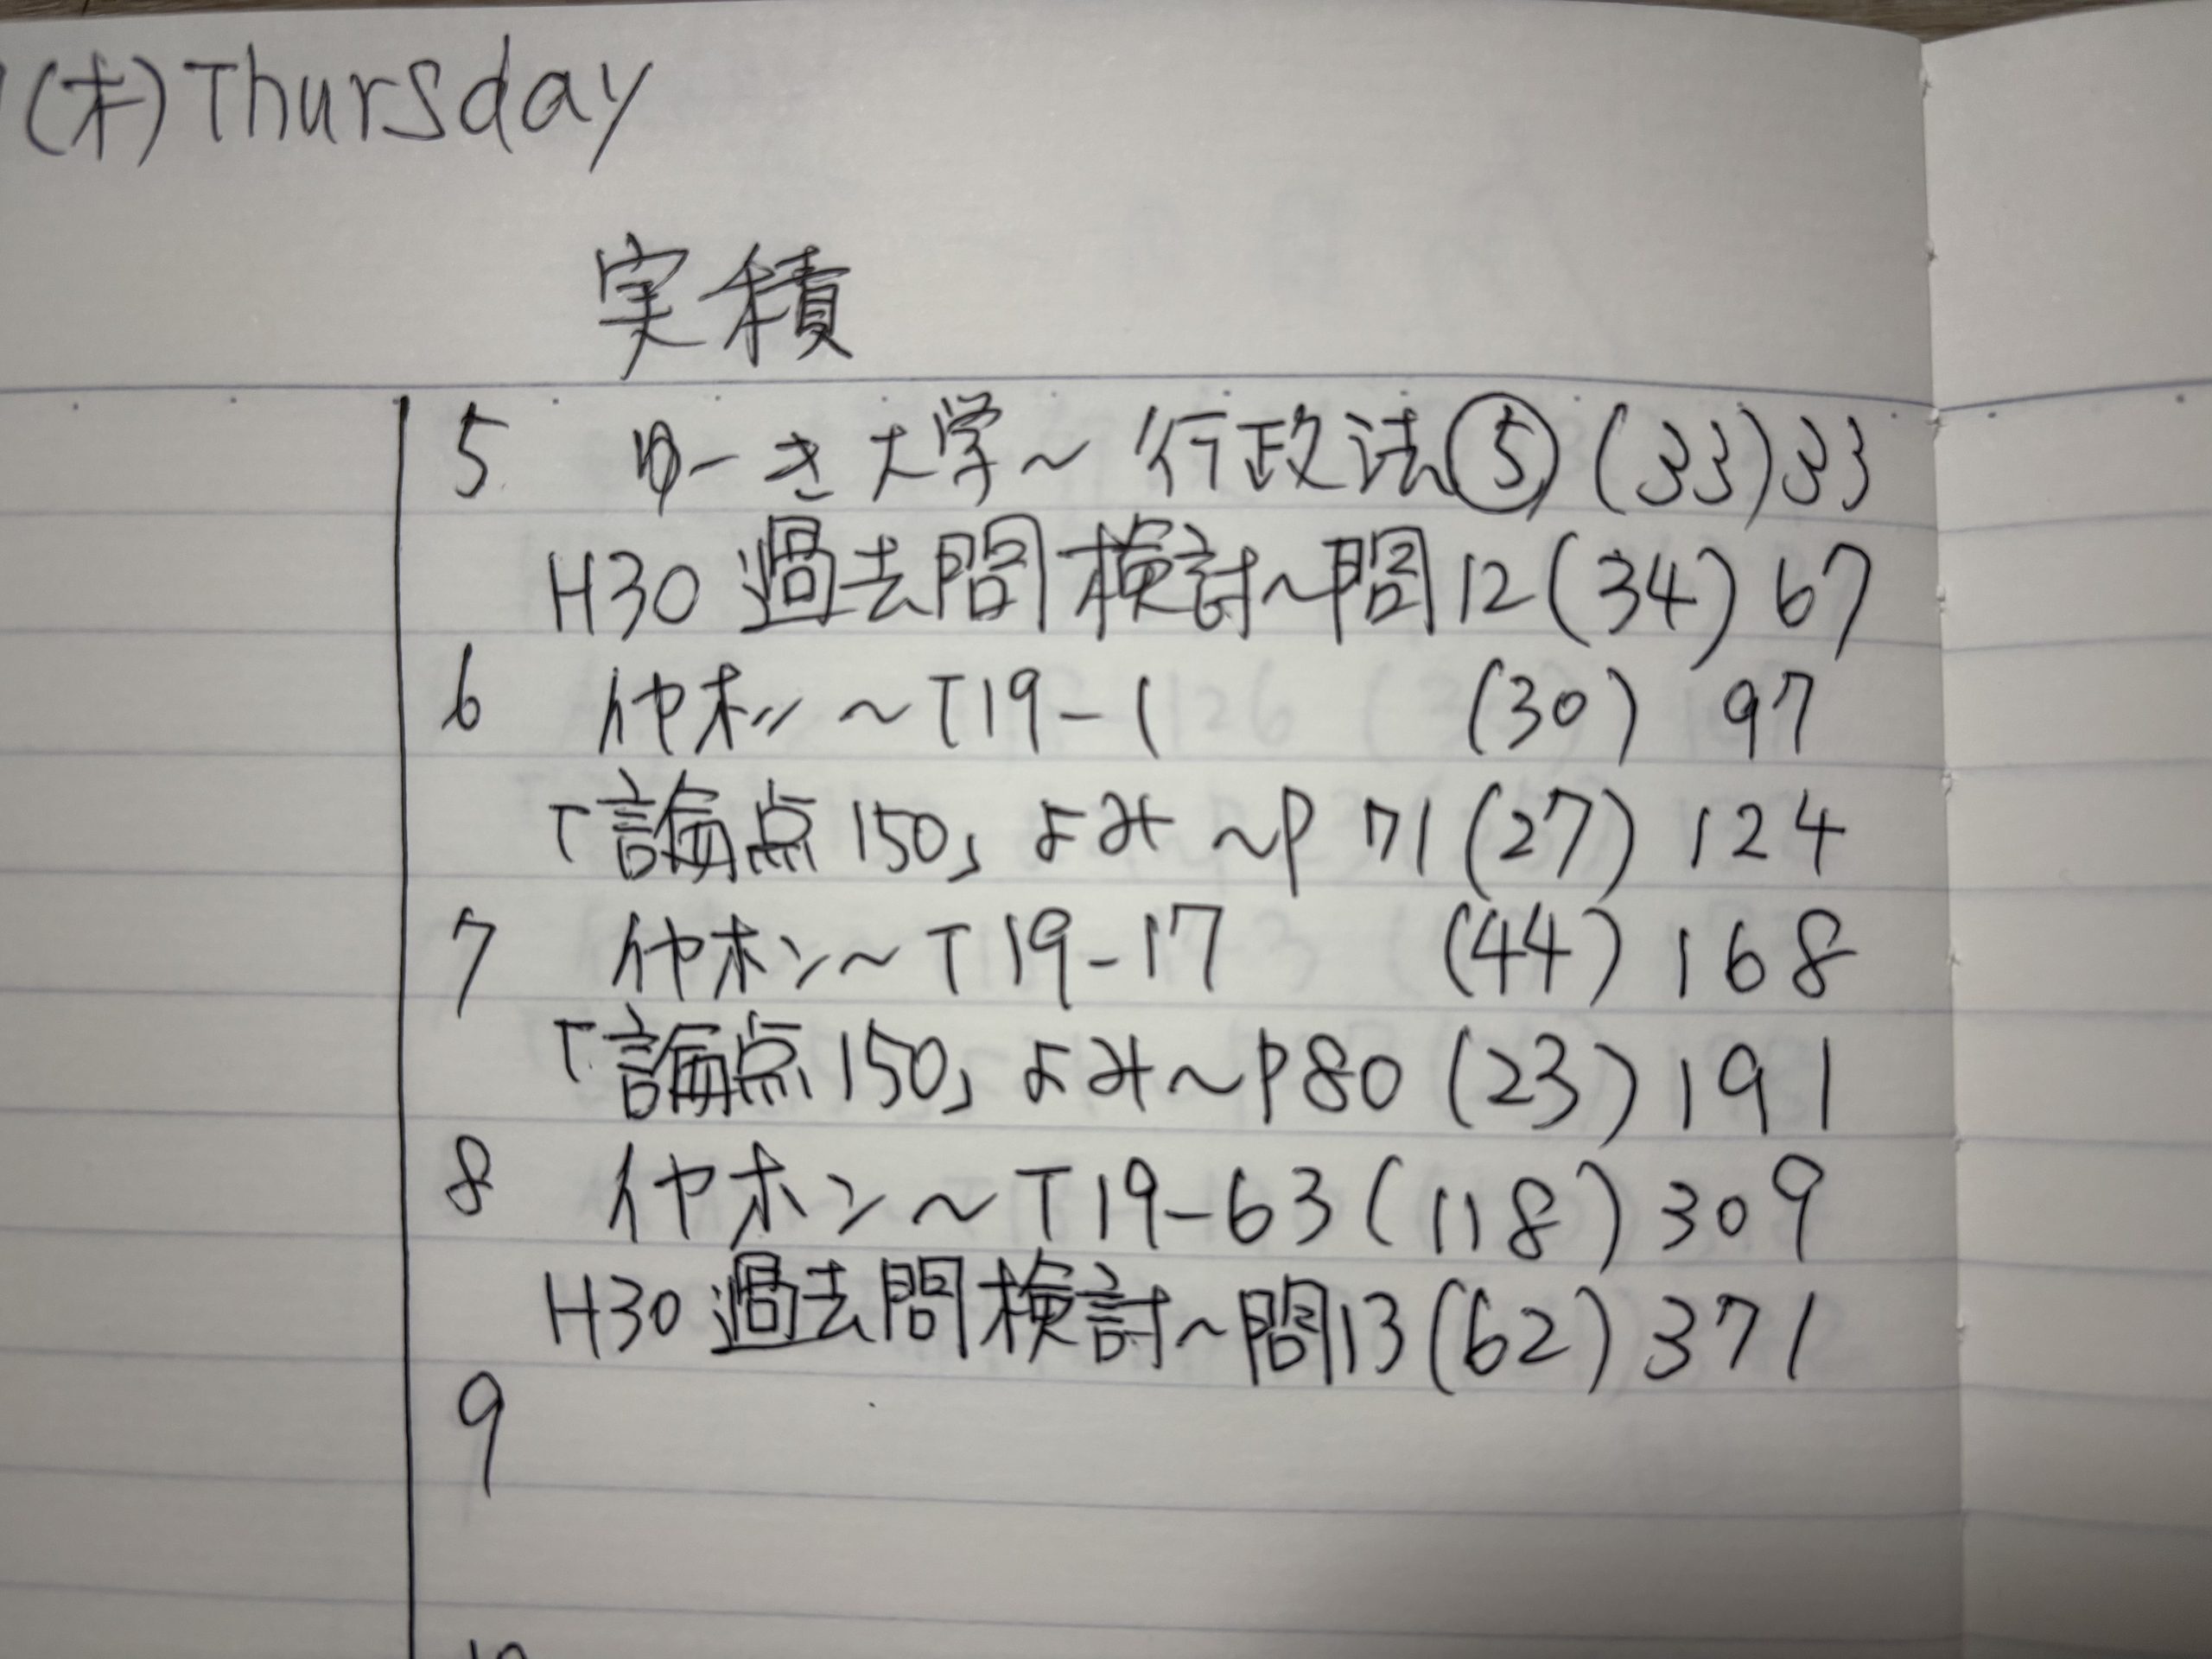 (木) Thursday
実積
5 ゆーき大学～行政法⑤ (33) 33
H30 過去問検討～問12 (34) 67
6 イヤホン～T19-1 (30) 97
「論点150」よみ～P71 (27) 124
7 イヤホン～T19-17 (44) 168
「論点150」よみ～P80 (23) 191
8 イヤホン～T19-63 (118) 309
H30 過去問検討～問13 (62) 371
9